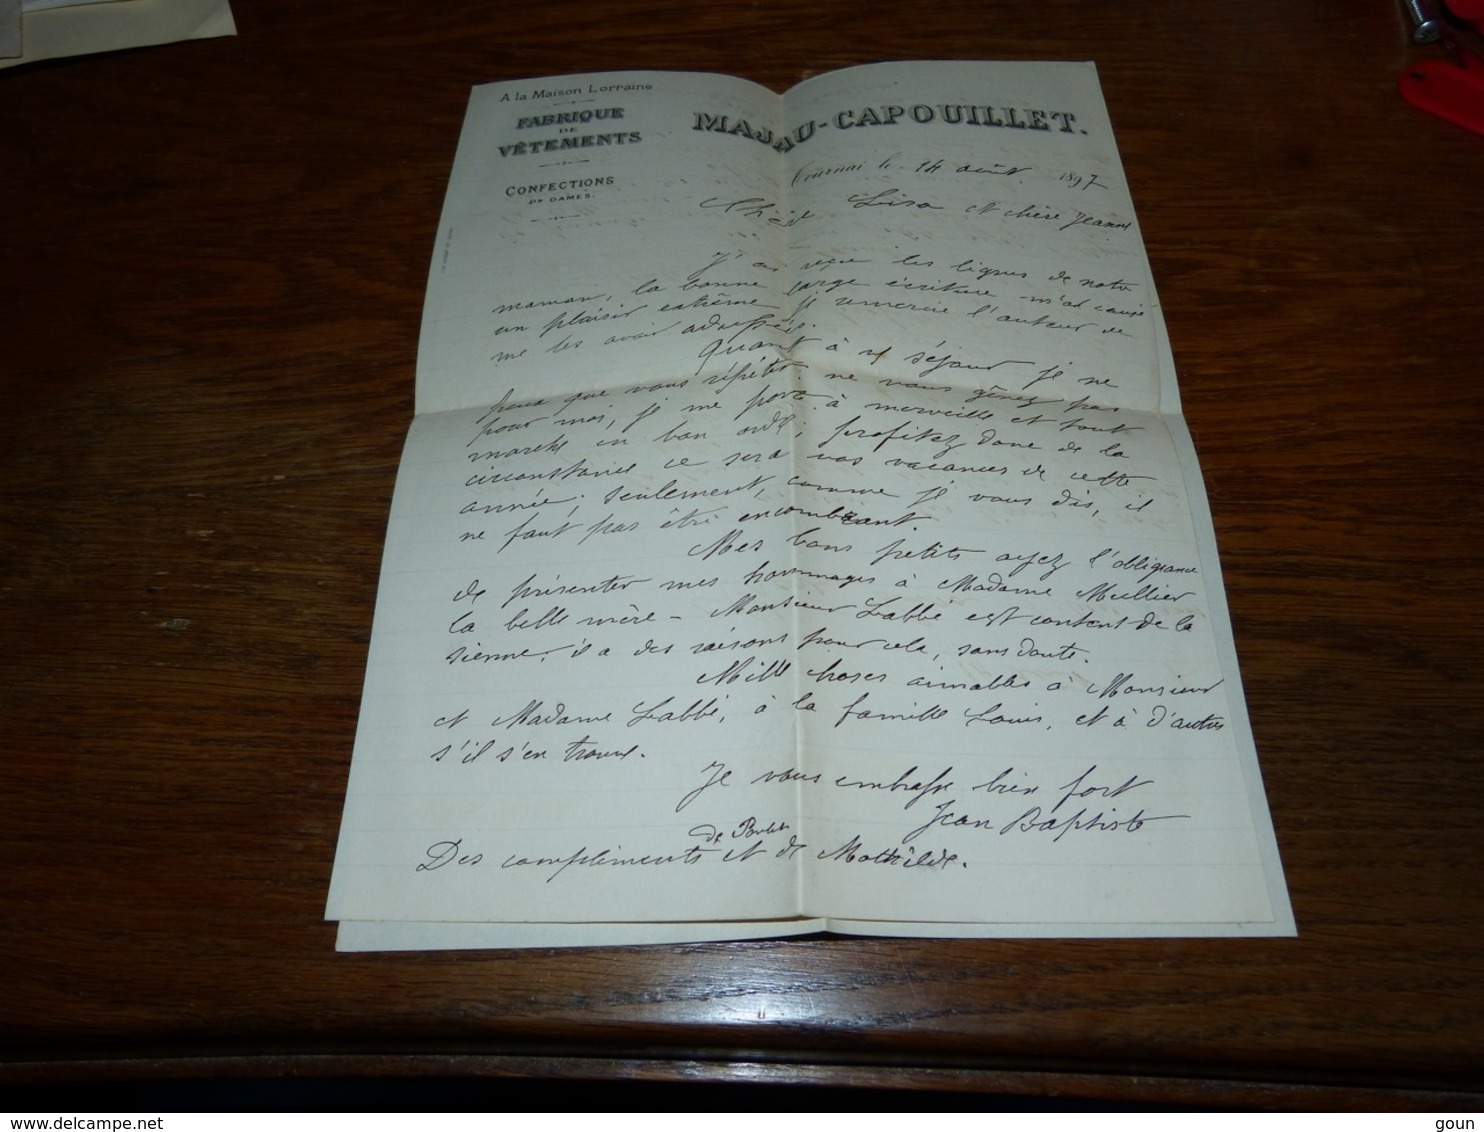 A la Maison Lorraine
FABRIQUE
DE
VÊTEMENTS
CONFECTIONS
Pr DAMES.
MAJAU-CAPOUILLET.
Tournai le 14 août 1897
Lisa et chère Jeanne
J'ai reçu les lignes de notre
maman, la bonne large écriture m'a causé
un plaisir extrême je remercie l'auteur de
me les avoir adressées.
Quant à ce séjour je ne
peux que vous répéter ne vous gênez pas
pour moi, je me porte à merveille et tout
marche en bon ordre; profitez donc de la
circonstance ce sera vos vacances de cette
année; seulement, comme je vous dis, il
ne faut pas être encombrant.
Mes bons petits ayez l'obligeance
de présenter mes hommages à Madame Mullier
la belle mère - Monsieur Labbé est content de la
sienne, il a des raisons pour cela, sans doute.
Mille choses aimables à Monsieur
et Madame Labbé, à la famille Louis, et à d'autres
s'il s'en trouve.
Je vous embrasse bien fort
Jean Baptiste
de
Des compliments et de Mathilde.
goun